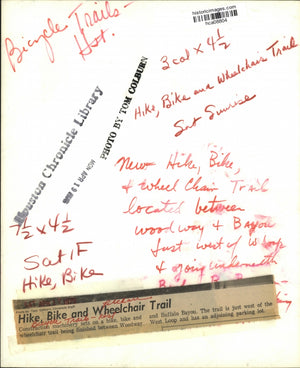 historicimages.com
Bicycle Trails -
Hot.
3 col x 4 1/2
Hike, Bike and Wheelchair Trail
Sat Sunrise
PHOTO BY TOM COLBURN
Houston Chronicle Library
New Hike, Bike
& wheel Chair Trail
located between
woodway & Bayou
just west of W Loop
& going underneath
7 1/2 x 4 1/2
Sat 1F
Hike, Bike
Hike, Bike and Wheelchair Trail
Construction machinery sits on a hike, bike and
wheelchair trail being finished between Woodway
and Buffalo Bayou. The trail is just west of the
West Loop and has an adjoining parking lot.